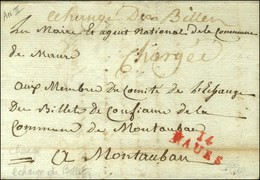 An 2
Echange Des Billets
Les Maire et agent National de la Commune
de Maurs
Chargée
aux Membres du Comité de l'Echange
des Billets de Confiance de la
Commune de Montauban
14
MAURS
à Montauban
échange de Billets